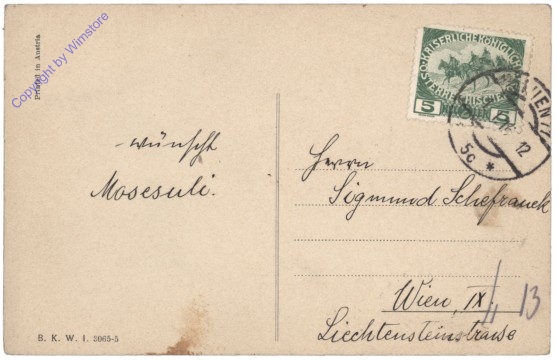 Copyright by Wimstore
Printed in Austria
KAISERLICHE KÖNIGLICHE
ÖSTERREICHISCHE
5
WIEN
12
5c *
-wünscht
Mosesuli.
Herrn
Sigmund Schefranek
Wien, IX.
13
Liechtensteinstrasse
B. K. W. I. 3065-5